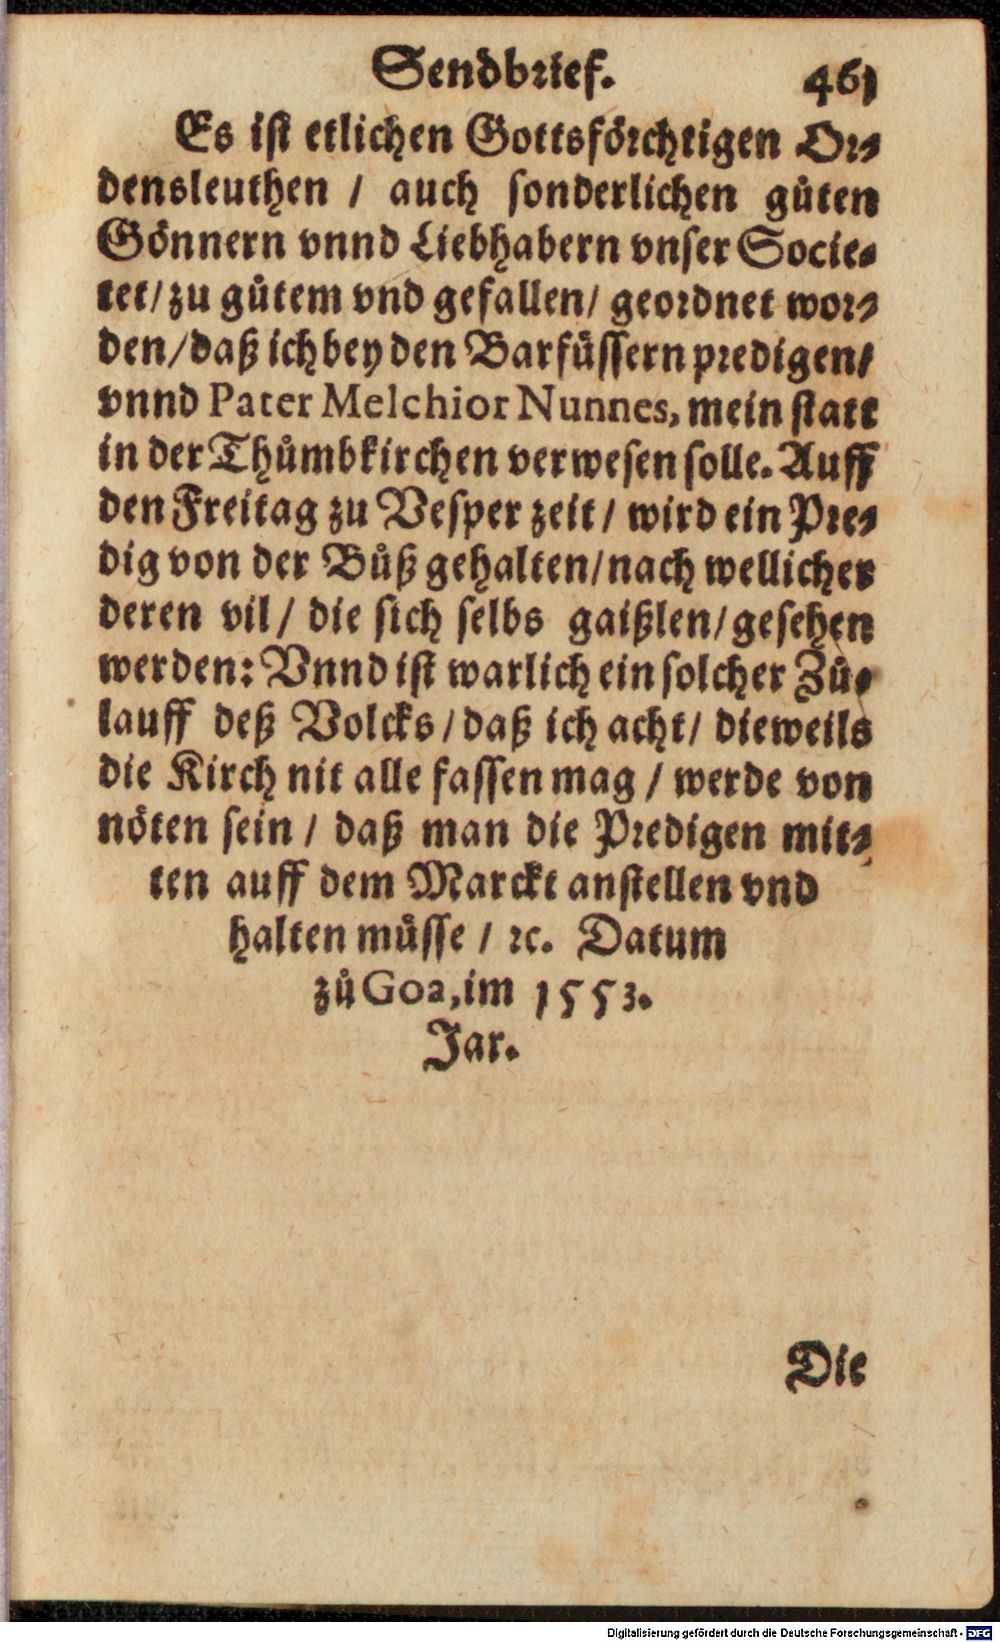 Sendbrief. 461
Es ist etlichen Gottsförchtigen Or⸗
densleuthen / auch sonderlichen gůten
Gönnern vnnd Liebhabern vnser Socie⸗
tet / zu gůtem vnd gefallen / geordnet wor⸗
den / daß ich bey den Barfüssern predigen /
vnnd Pater Melchior Nunnes, mein statt
in der Thůmbkirchen verwesen solle. Auff
den Freitag zu Vesper zeit / wird ein Pre⸗
dig von der Bůß gehalten / nach wellicher
deren vil / die sich selbs gaißlen / gesehen
werden: Vnnd ist warlich ein solcher Zů⸗
lauff deß Volcks / daß ich acht / dieweils
die Kirch nit alle fassen mag / werde von
nöten sein / daß man die Predigen mit⸗
ten auff dem Marckt anstellen vnd
halten müsse / ꝛc. Datum
zů Goa, im 1553.
Jar.
Die
Digitalisierung gefördert durch die Deutsche Forschungsgemeinschaft - DFG